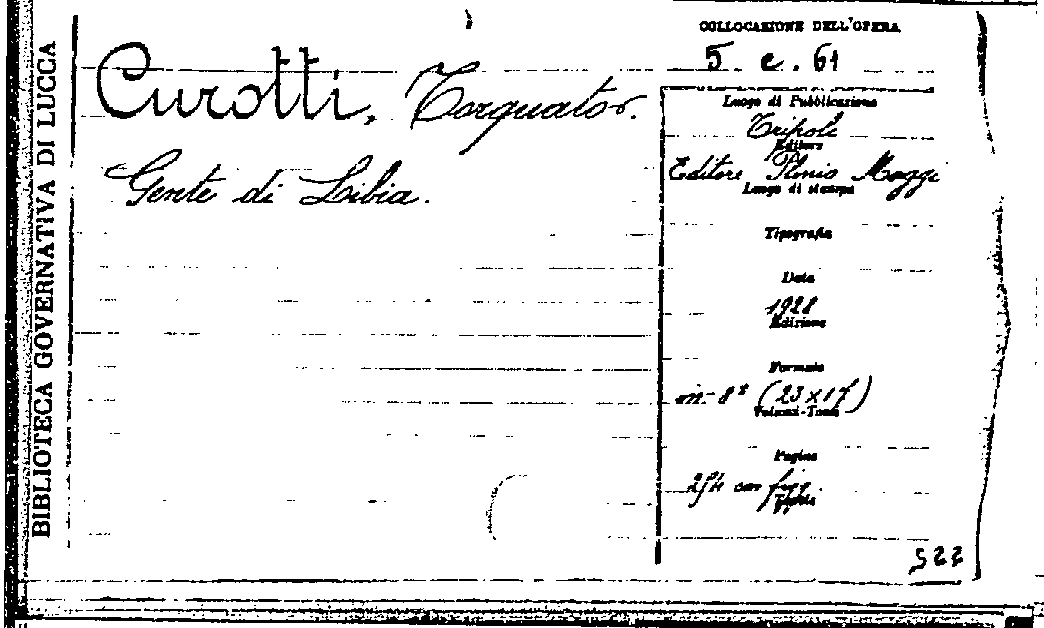 BIBLIOTECA GOVERNATIVA DI LUCCA
Curotti, Torquato.
Gente di Libia.
COLLOCAZIONE DELL'OPERA
5. c. 61
Luogo di Pubblicazione
Tripoli
Editore
Editore Plinio Maggi
Luogo di stampa
Tipografia
Data
1928
Edizione
Formato
in-8° (23x17)
Volumi-Tomi
Pagine
254 con figg.
522